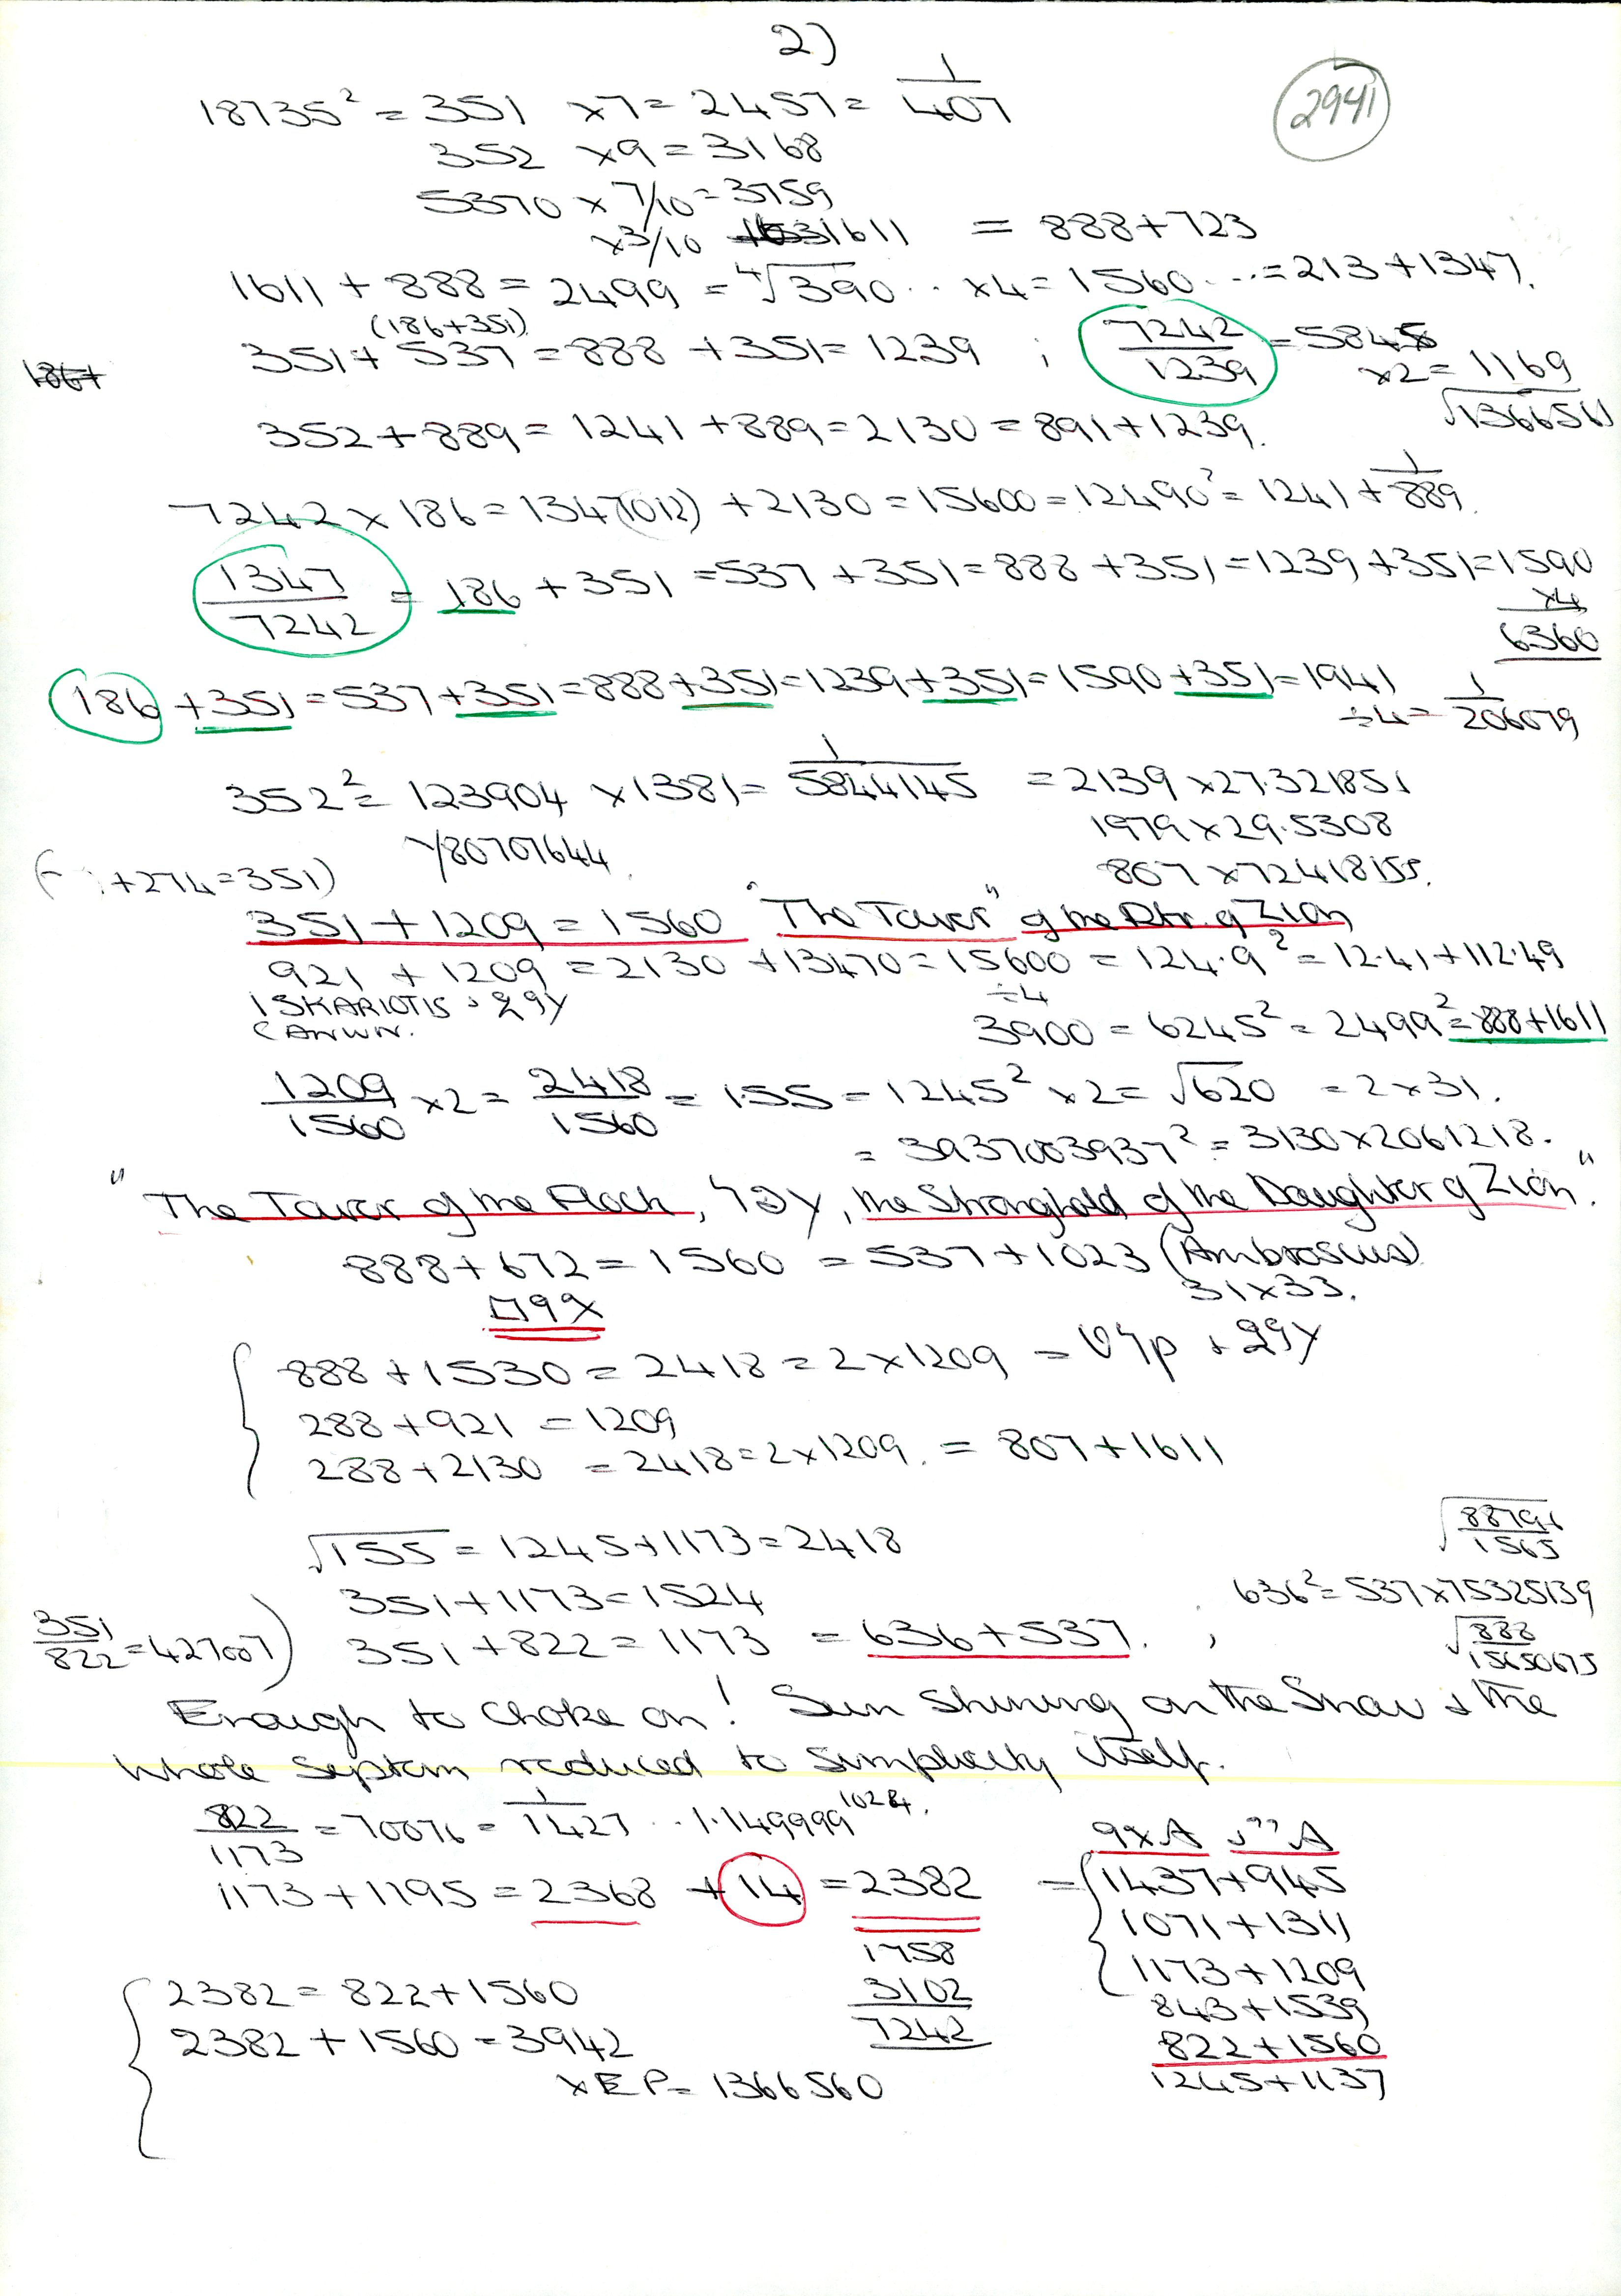 2)
2941
18735² = 351 x7 = 2457 = 1/407
352 x9 = 3168
5370 x 7/10 = 3759
x3/10 1611 = 888+723
1611 + 888 = 2499 = ⁴√390.. x4 = 1560... = 213+1347.
(186+351)
351 + 537 = 888 + 351 = 1239 ; 7242/1239 = 5845
x2 = 1169
√1366561
186+
352 + 889 = 1241 + 889 = 2130 = 891 + 1239.
7242 x 186 = 1347(012) + 2130 = 15600 = 12490² = 1241 + 1/889.
1347/7242 = 186 + 351 = 537 + 351 = 888 + 351 = 1239 + 351 = 1590
x4
6360
186 + 351 = 537 + 351 = 888 + 351 = 1239 + 351 = 1590 + 351 = 1941
÷4 = 1/206079
352² = 123904 x 1381 = 1/5844145 = 2139 x 27.321851
1979 x 29.5308
Y80707644.
807 x 72418155.
+274=351)
351 + 1209 = 1560 "The Tower" of the Dtr. of Zion
921 + 1209 = 2130 + 13470 = 15600 = 124.9² = 12.41 + 112.49
ISKARIOTIS
÷4
3900 = 6245² = 2499² = 888+1611
1209/1560 x2 = 2418/1560 = 1.55 = 1245² x2 = √620 = 2 x 31.
= 3937003937² = 3130 x 2061218.
"The Tower of the Flock, עפל, the Stronghold of the Daughter of Zion".
888 + 672 = 1560 = 537 + 1023 (Ambrosius)
31 x 33.
888 + 1530 = 2418 = 2 x 1209
288 + 921 = 1209
288 + 2130 = 2418 = 2 x 1209. = 807 + 1611
√155 = 1245 + 1173 = 2418
√88791/1565
351 + 1173 = 1524
636² = 537 x 75325139
351/822 = 427007) 351 + 822 = 1173 = 636 + 537. ;
√888/15650675
Enough to choke on! Sun shining on the Snow & the
whole system reduced to simplicity itself.
822/1173 = 70076 = 1/1427 .. 1.149999¹⁰²⁴.
1173 + 1195 = 2368 + 14 = 2382 = 1437+945
1071 + 1311
1758
1173 + 1209
2382 = 822 + 1560
3102
843 + 1539
2382 + 1560 = 3942
7242
822 + 1560
x EP = 1366560
1245 + 1137